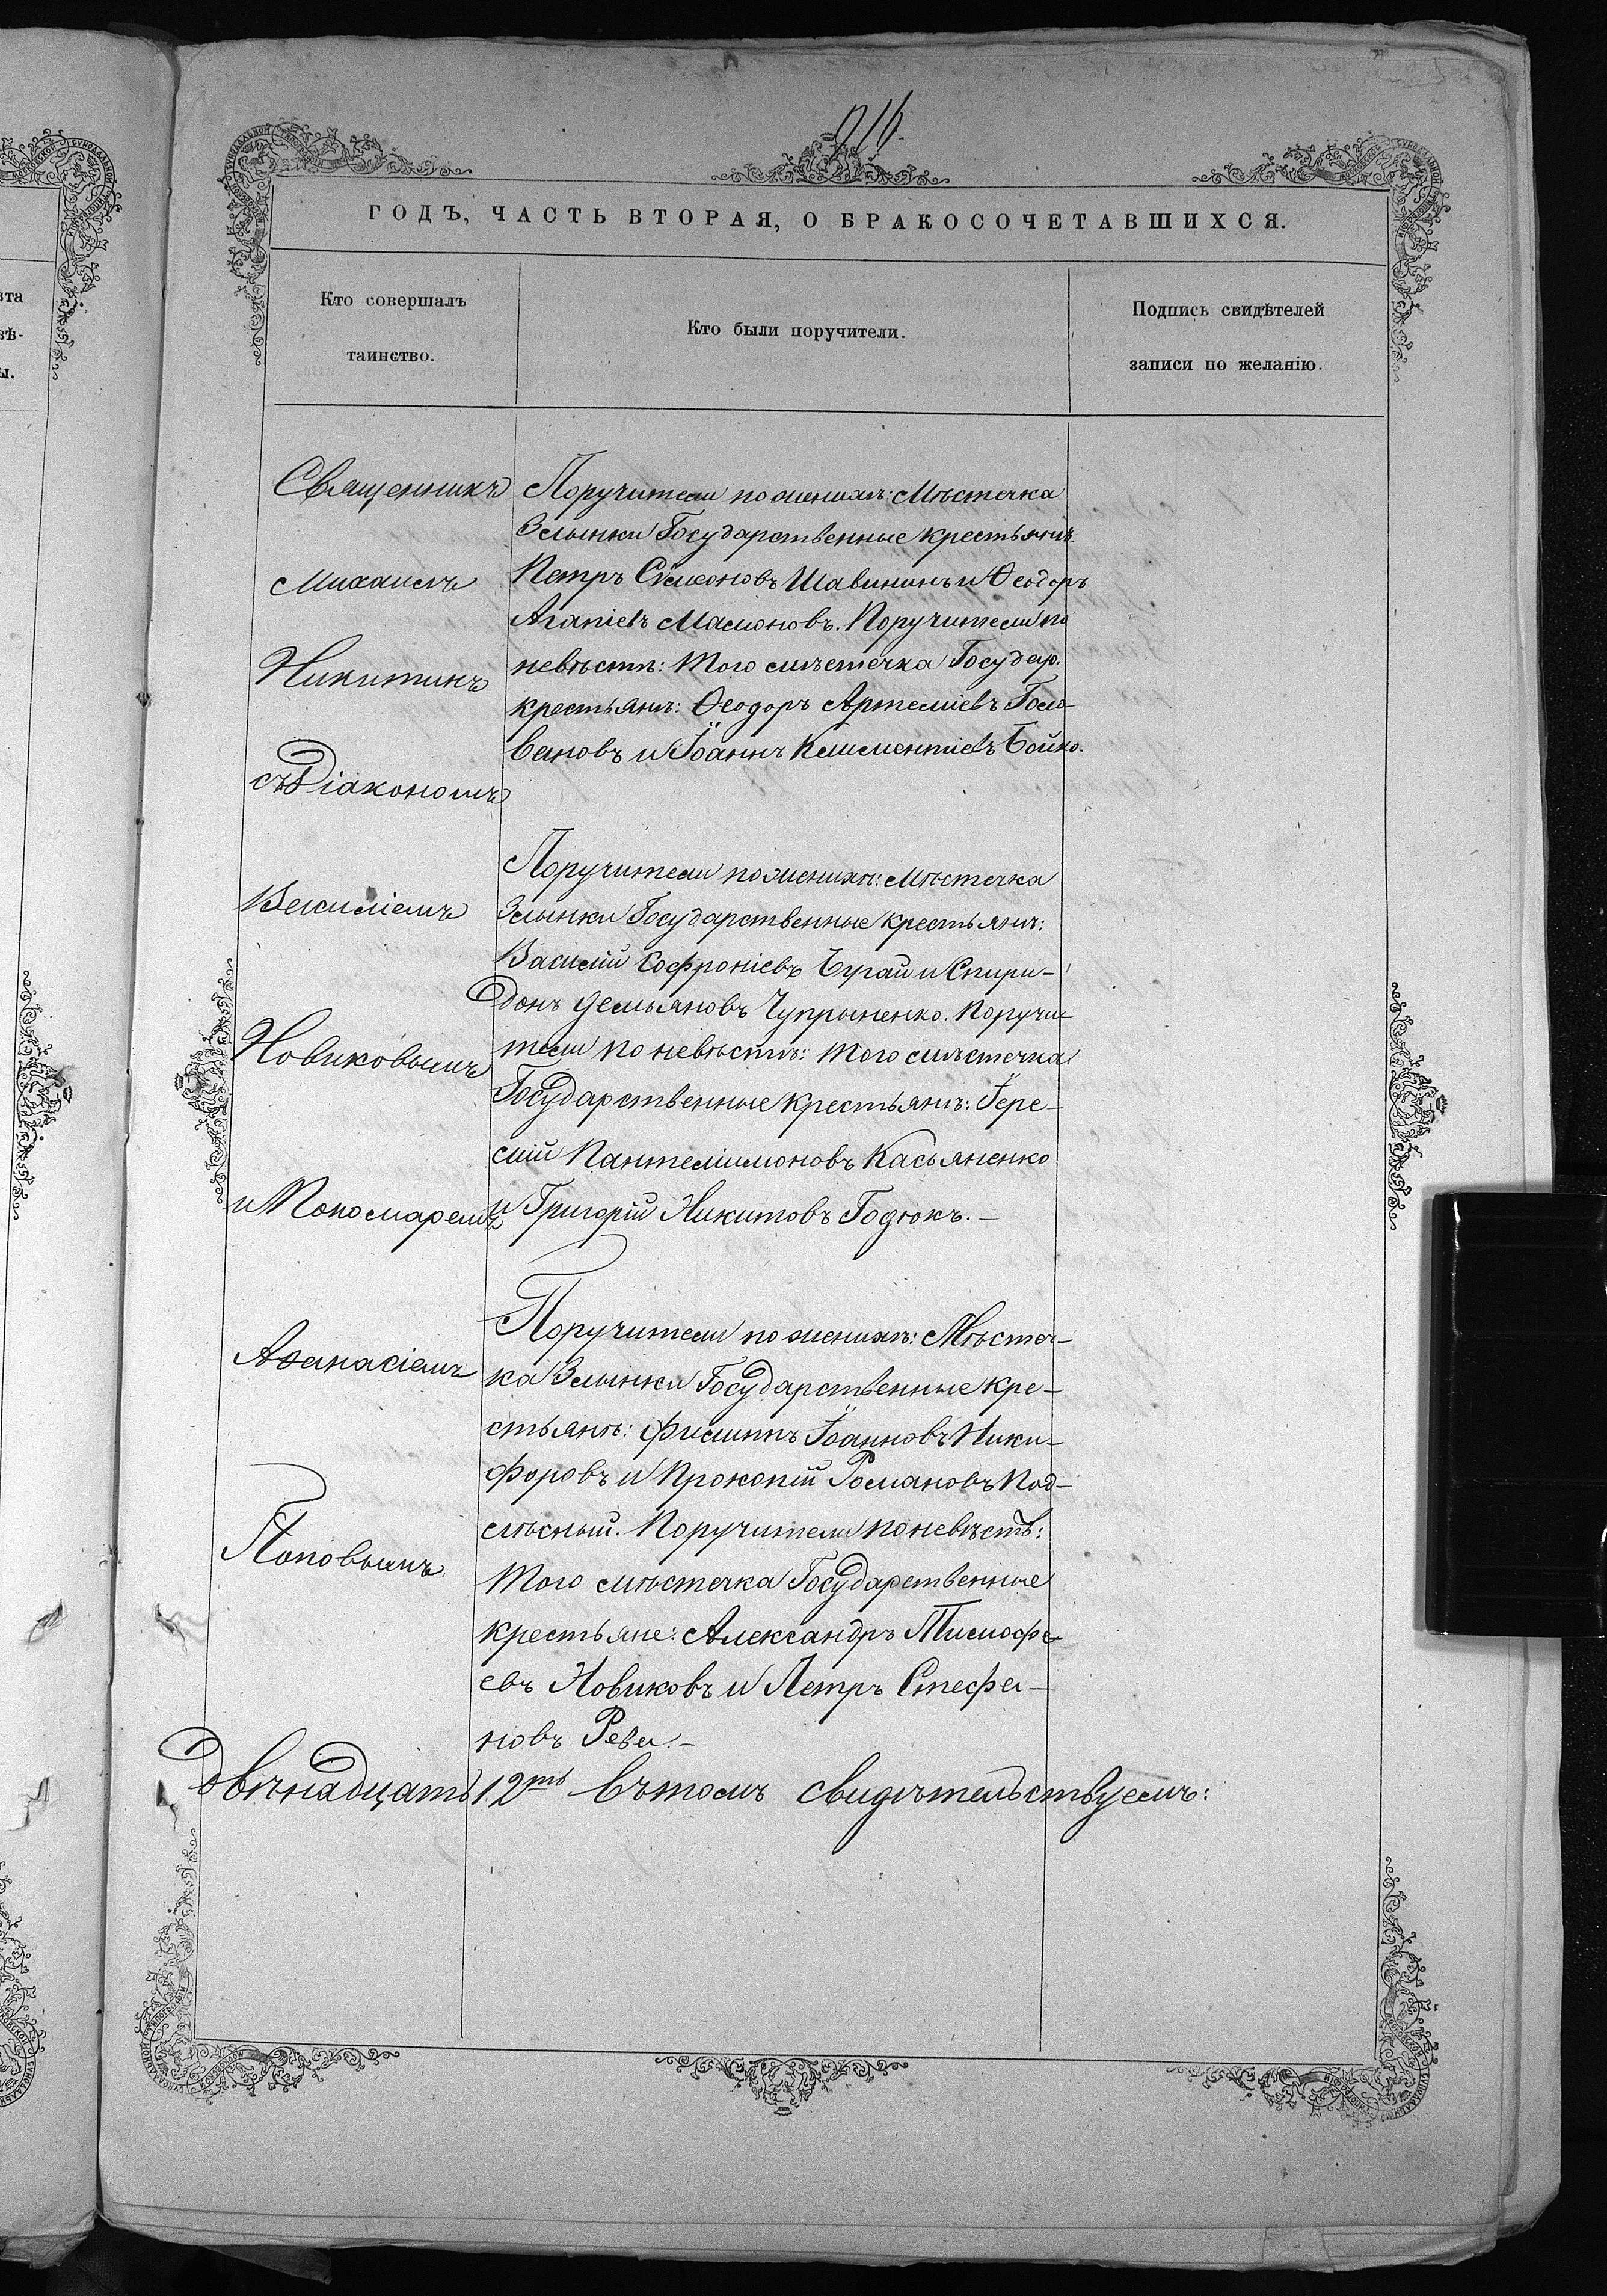 916.
ГОДЪ, ЧАСТЬ ВТОРАЯ, О БРАКОСОЧЕТАВШИХСЯ.
Кто совершалъ
таинство.
Кто были поручители.
Подпись свидѣтелей
записи по желанію.
Священникъ
Михаилъ
Никитинъ
съ Діакономъ
Василіемъ
Новиковымъ
и Пономаремъ
Аѳанасіемъ
Поповымъ
Поручители по женихѣ: Мѣстечка
Злынки Государственные крестьянѣ
Петръ Сѵмеоновъ Шавининъ и Ѳеодоръ
Агапіевъ Мамоновъ. Поручители по
невѣстѣ: того мѣстечка Государ.
крестьянѣ: Ѳеодоръ Артеміевъ Голо-
вановъ и Іоаннъ Климентіевъ Бойко.
Поручители по женихѣ: Мѣстечка
Злынки Государственные крестьянѣ:
Василій Софроніевъ Бугай и Спири-
донъ Демьяновъ Чупрыненко. Поручи-
тели по невѣстѣ: того мѣстечка
Государственные крестьянѣ: Іере-
мій Пантелімоновъ Касьяненко
и Григорій Никитовъ Годюкъ. –
Поручители по женихѣ: Мѣстеч-
ка Злынки Государственные кре-
стьянѣ: Филиппъ Іоанновъ Ники-
форовъ и Прокопій Романовъ Под-
лѣсный. Поручители по невѣстѣ:
того мѣстечка Государственные
крестьяне: Александръ Тимофе-
евъ Новиковъ и Петръ Стефа-
новъ Рева. –
двѣнадцать 12ть въ томъ свидѣтельствуемъ: